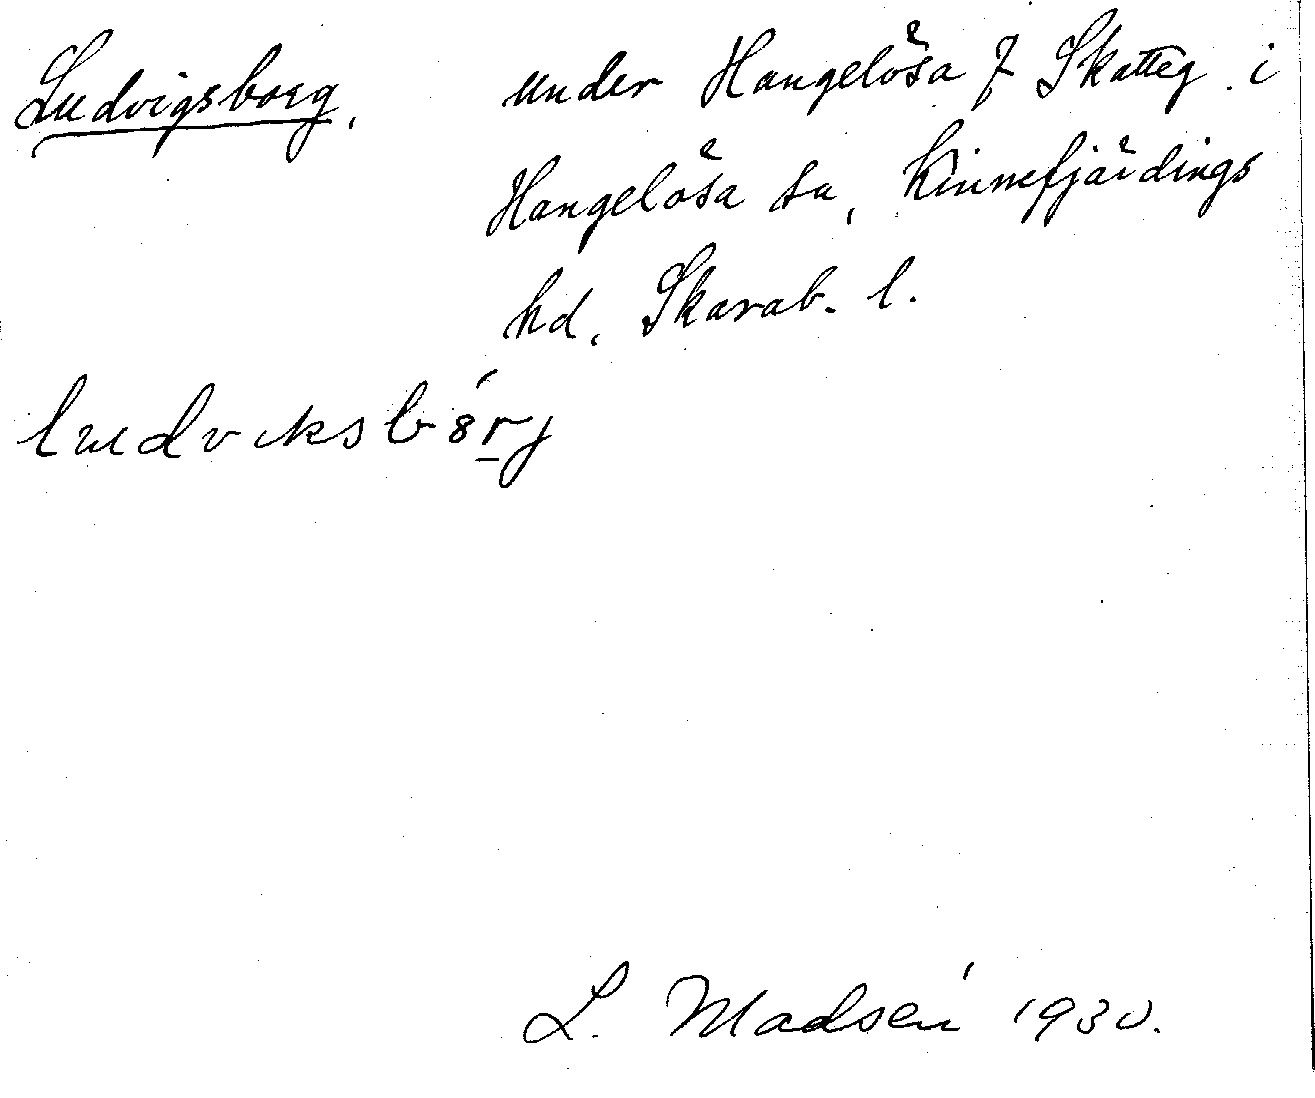 Ludvigsborg, under Hangelösa 7 Skatteg. i
Hangelösa sn, Kinnefjärdings
hd. Skarab. l.
L. Madsén 1930.